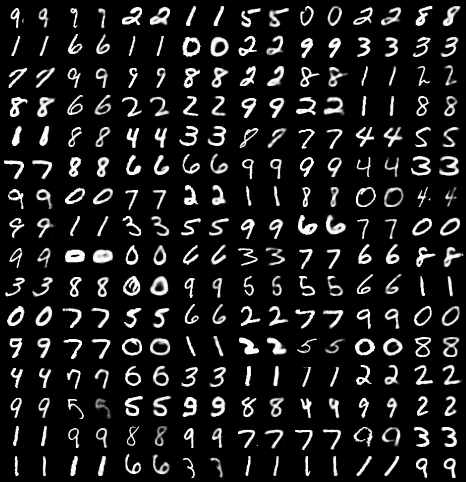 9 9 9 9 2 2 1 1 5 5 0 0 2 2 8 8
1 1 6 6 1 1 0 0 2 2 9 9 3 3 3 3
7 7 9 9 9 9 8 8 2 2 8 8 1 1 2 2
8 8 6 6 2 2 2 2 9 9 2 2 1 1 8 8
1 1 8 8 4 4 3 3 8 8 7 7 4 4 5 5
7 7 8 8 6 6 6 6 9 9 9 9 4 4 3 3
9 9 0 0 7 7 2 2 1 1 8 8 0 0 4 4
9 9 1 1 3 3 5 5 9 9 6 6 7 7 0 0
9 9 0 0 0 0 6 6 3 3 7 7 6 6 8 8
3 3 8 8 0 0 9 9 5 5 5 5 6 6 1 1
0 0 7 7 5 5 6 6 2 2 7 7 9 9 0 0
9 9 7 7 0 0 1 1 2 2 5 5 0 0 8 8
4 4 7 7 6 6 3 3 1 1 1 1 2 2 2 2
9 9 5 5 5 5 9 9 8 8 4 4 9 9 2 2
1 1 9 9 8 8 9 9 7 7 7 7 9 9 3 3
1 1 1 1 6 6 3 3 1 1 1 1 1 1 9 9